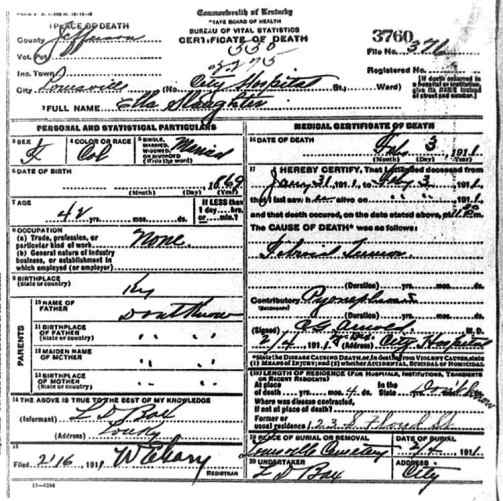 Commonwealth of Kentucky
STATE BOARD OF HEALTH
BUREAU OF VITAL STATISTICS
CERTIFICATE OF DEATH
1 PLACE OF DEATH
County Jefferson
Vot. Pct.
Inc. Town
City Louisville (No. City Hospital St.; Ward)
3760
File No. 376
Registered No.
(If death occurred in a hospital or institution, give its NAME instead of street and number.)
2 FULL NAME Ella Slaughter
PERSONAL AND STATISTICAL PARTICULARS
3 SEX F
4 COLOR OR RACE Col
5 SINGLE, MARRIED, WIDOWED, OR DIVORCED (Write the word) Married
6 DATE OF BIRTH
1869
(Month) (Day) (Year)
7 AGE
42 yrs. mos. ds.
If LESS than 1 day, hrs. or min.?
8 OCCUPATION
(a) Trade, profession, or particular kind of work None
(b) General nature of industry business, or establishment in which employed (or employer)
9 BIRTHPLACE
(State or country) Ky
PARENTS
10 NAME OF FATHER Dont Know
11 BIRTHPLACE OF FATHER (State or country) " "
12 MAIDEN NAME OF MOTHER " "
13 BIRTHPLACE OF MOTHER (State or country) " "
14 THE ABOVE IS TRUE TO THE BEST OF MY KNOWLEDGE
(Informant) L D Bax
(Address)
15
Filed 2/16 1911
REGISTRAR
MEDICAL CERTIFICATE OF DEATH
16 DATE OF DEATH
3 1911
(Month) (Day) (Year)
17 I HEREBY CERTIFY, That I attended deceased from
Jany 31 1911, to Feby 3 1911
that I last saw alive on 1911
and that death occured, on the date stated above, at
The CAUSE OF DEATH* was as follows:
Fibroid Tumor
(Duration) yrs. mos. ds.
Contributory
(Secondary)
(Duration) yrs. mos. ds.
(Signed) Arnold M D
2/4 191 (Address) City Hospital
*State the DISEASE CAUSING DEATH, or, in deaths from VIOLENT CAUSES, state (1) MEANS OF INJURY; and (2) whether ACCIDENTAL, SUICIDAL or HOMICIDAL
18 LENGTH OF RESIDENCE (FOR HOSPITALS, INSTITUTIONS, TRANSIENTS OR RECENT RESIDENTS)
At place of death yrs. mos. 4 ds. In the State
Where was disease contracted, if not at place of death?
Former or usual residence 123 S. Floyd St
19 PLACE OF BURIAL OR REMOVAL
Louisville Cemetery
DATE OF BURIAL
191
20 UNDERTAKER
L D Bax
ADDRESS
City